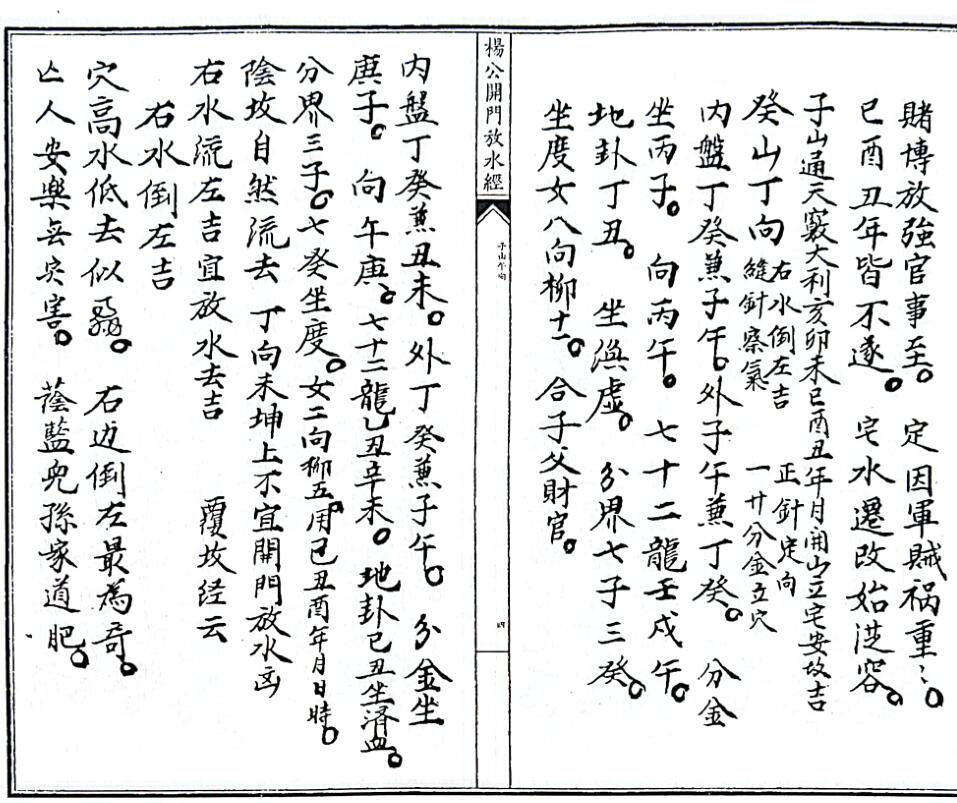 賭博放強官事至。定因軍賊禍重:。
巳酉丑年皆不遂。宅水遷改始洪容。
子山通天竅大利亥卯未巳酉丑年月開山立宅安坟吉
癸山丁向
右水倒左吉 正針定向
縫針察氣 一廿分金立穴
內盤丁癸兼子午。外子午兼丁癸。分金
坐丙子。向丙午。七十二龍壬戌午。
地卦丁丑。坐渙虛。分界七子三癸。
坐度女八向柳十一。合子父財官。
楊公開門放水經
子山午向
四
內盤丁癸兼丑未。外丁癸兼子午。分金坐
庚子。向午庚。七十二龍乙丑辛未。地卦巳丑坐濟
分界三子。七癸坐度。女二向柳五。用巳丑酉年月日時。
陰坟自然流去 丁向未坤上不宜開門放水凶
右水流左吉宜放水去吉 覆坟经云
右水倒左吉
穴高水低去似 右边倒左最為奇。
亡人安樂無灾害。蔭藍兒孫家道肥。